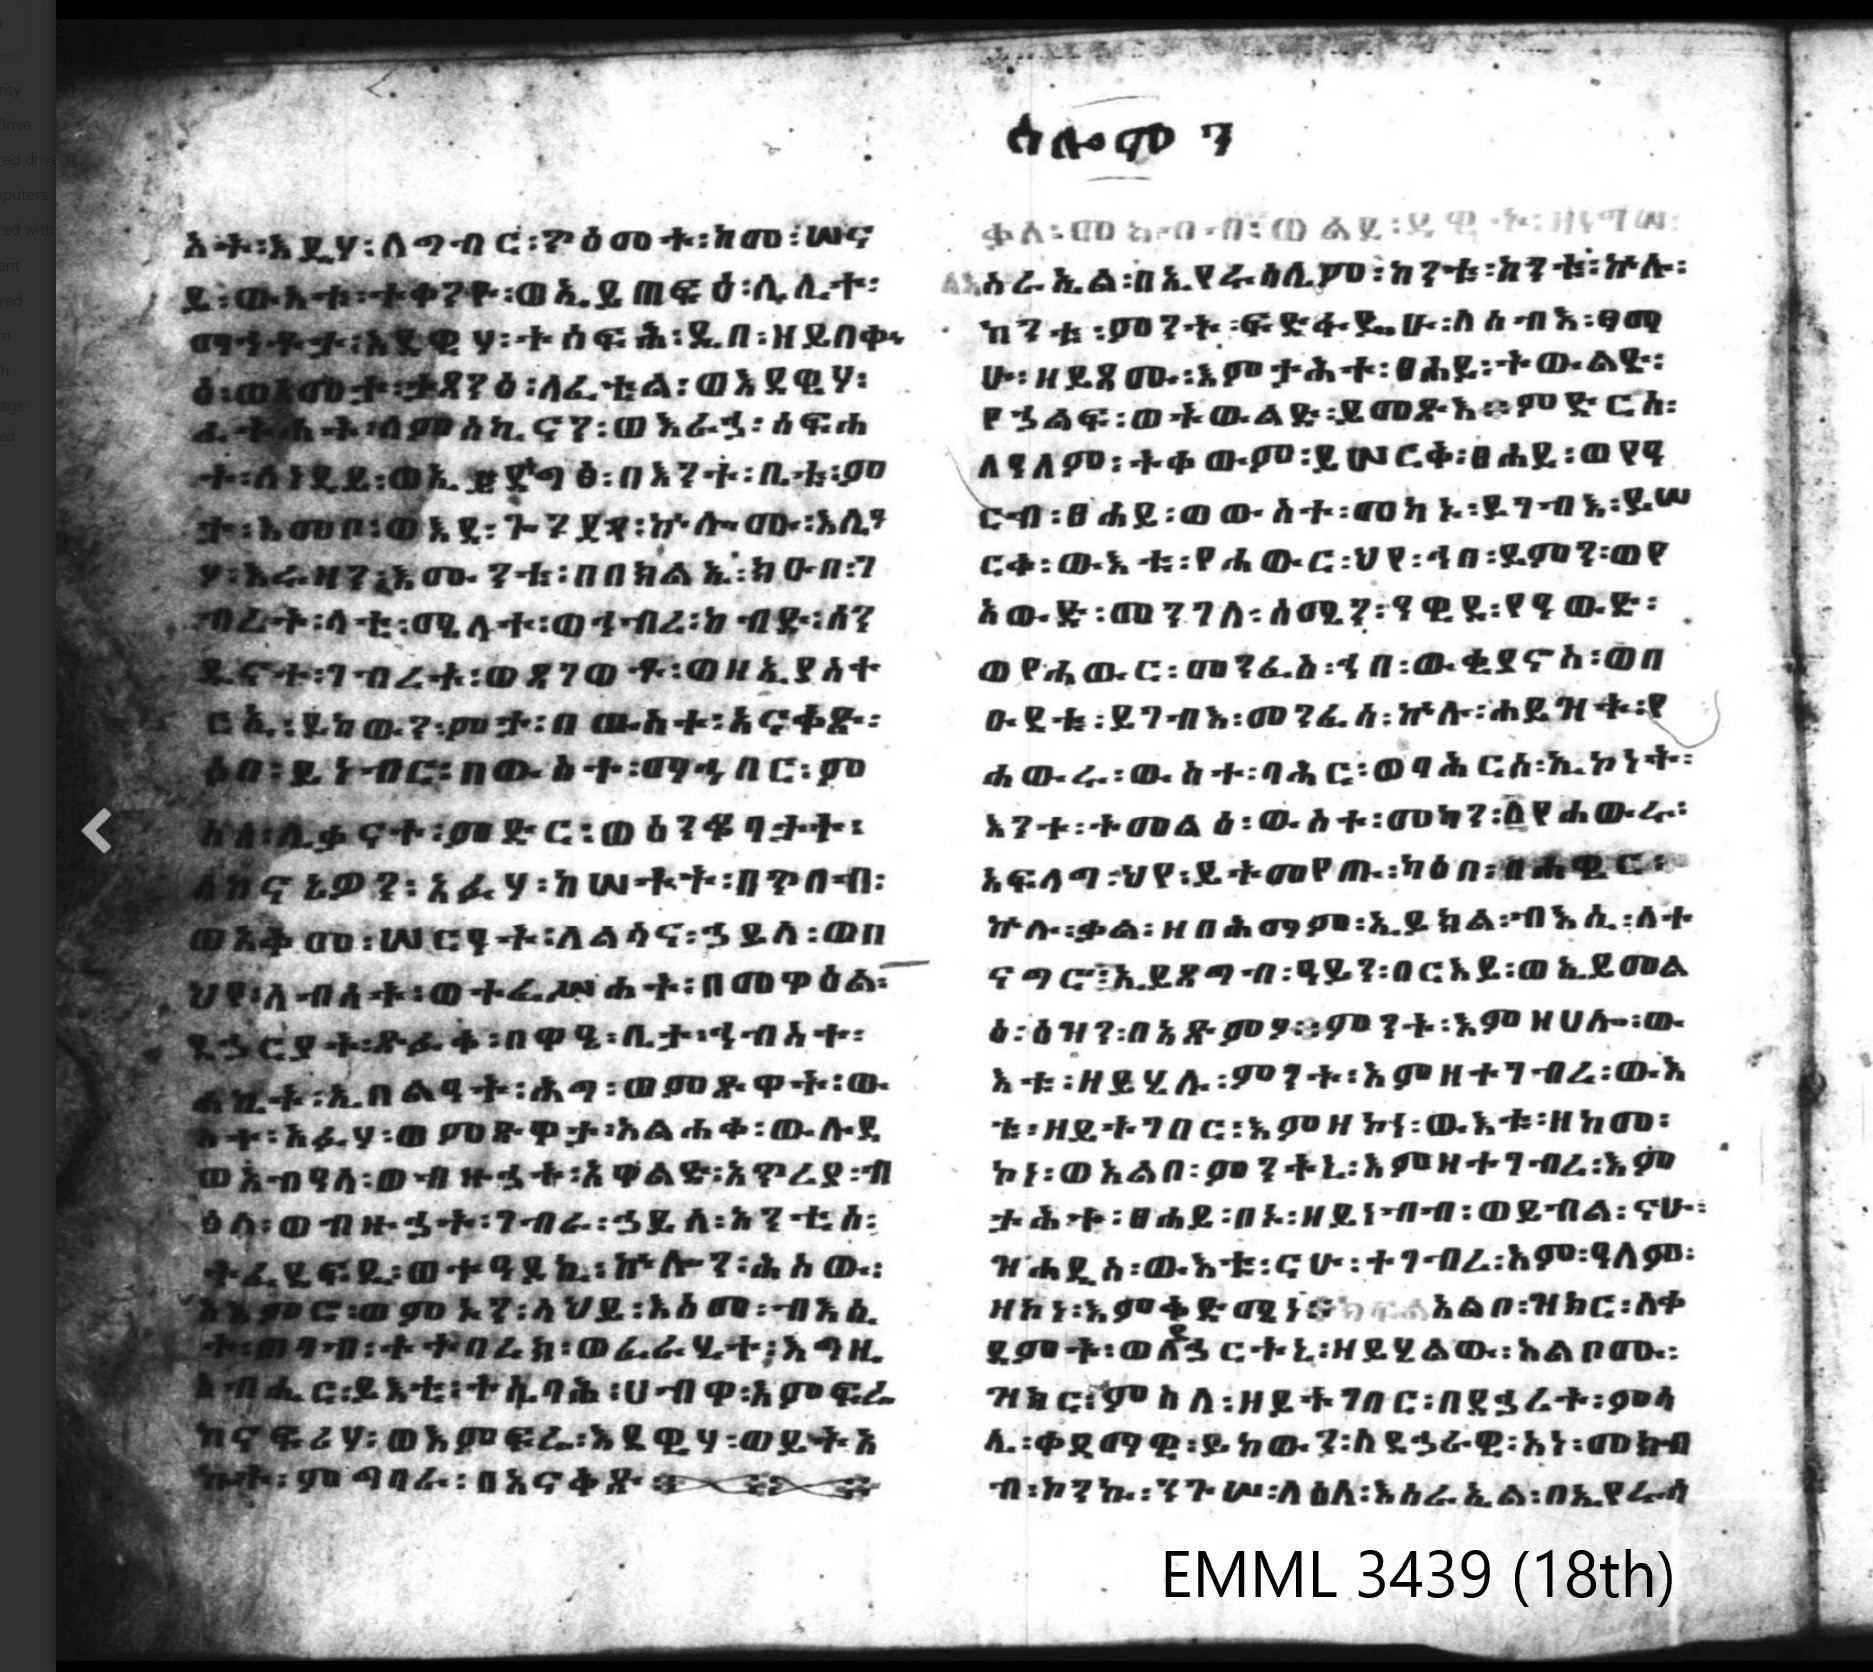 ሰሎሞን
አት፡እደዊሃ፡ለግብር፡ጥዕመት፡ከመ፡ሠና
ይ፡ውእቱ፡ተቀንዮ፡ወኢይጠፍዕ፡ሌሊተ፡
ማኅቶታ፡እደዊሃ፡ተሰፍሕ፡ዲበ፡ዘይበቍ
ዕ፡ወእመታ፡ታጸንዕ፡ለፈቲል፡ወእደዊሃ፡
ፈትሐት፡ለምስኪናን፡ወእራኃ፡ሰፍሐ
ት፡ለነዳይ፡ወኢይዴግፅ፡በእንተ፡ቤቱ፡ም
ታ፡እመቦ፡ወእደ፡ጐንደየ፡ኵሎሙ፡እሊኣ
ሃ፡አራዘን፡እሙንቱ፡በበክልኤ፡ክዑበ፡ገ
ብረት፡ላቲ፡ሜላተ፡ወገብረ፡ክብድ፡ሰን
ዱናተ፡ገብረት፡ወጸገወቶ፡ወዘኢያስተ
ርኢ፡ይከውን፡ምታ፡በውስተ፡አናቅጽ፡
ዕበ፡ይነብር፡በውስተ፡ማኅበር፡ም
ስለ፡ሊቃናተ፡ምድር፡ወዕንቆ፡ባታት፡
ለከናኔዎን፡አፈሃ፡ከሠተት፡በጥበብ፡
ወአቅመ፡ሠርዓት፡ለልሳና፡ኃይለ፡ወበ
ህየ፡ለብሰት፡ወተፈሥሐት፡በመዋዕል፡
ደኃርያት፡ጽፉቀ፡በዋዔ፡ቤታ፡ኀብእተ፡
ሐኬት፡ኢበልዓት፡ሕግ፡ወምጽዋት፡ው
ስተ፡አፉሃ፡ወምጽዋታ፡አልሐቀ፡ውሉደ
ወአብዓለ፡ወብዙኃት፡አዋልድ፡አጥረያ፡ብ
ዕለ፡ወብዙኃት፡ገብራ፡ኃይለ፡አንቲሰ፡
ትፈደፍዲ፡ወተዓደኪ፡ኵሎን፡ሕሰው፡
አእምሮ፡ወምኑን፡ላህይ፡እስመ፡ብእሲ
ት፡ጠባብ፡ተትባረክ፡ወፈራሂተ፡እግዚ
አብሔር፡ይእቲ፡ትሴባሕ፡ሀብዋ፡እምፍሬ
ከናፍሪሃ፡ወእምፍሬ፡እደዊሃ፡ወይትአ
ኰት፡ምግባራ፡በአናቅጽ፡
ቃለ፡መክብብ፡ወልደ፡ዳዊት፡ዘነግሠ፡
እስራኤል፡በኢየሩሳሌም፡ከንቱ፡ከንቱ፡ኵሉ፡
ከንቱ፡ምንት፡ፍድፋዴሁ፡ለሰብእ፡ፃማ
ሁ፡ዘይጻሙ፡እምታሕተ፡ፀሐይ፡ትውልድ፡
የኃልፍ፡ወትውልድ፡ይመጽእ፡ምድርሰ፡
ለዓለም፡ተቀውም፡ይሠርቅ፡ፀሐይ፡ወየዓ
ርብ፡ፀሐይ፡ወውስተ፡መካኑ፡ይገብእ፡ይሠ
ርቅ፡ውእቱ፡የሐውር፡ህየ፡ኀበ፡ደምን፡ወየ
አውድ፡መንገለ፡ሰሜን፡ዓዊደ፡የዓውድ፡
ወየሐውር፡መንፈስ፡ኀበ፡ውቂያኖስ፡ወበ
ዑደቱ፡ይገብእ፡መንፈስ፡ኵሉ፡ሐይዝት፡የ
ሐውሩ፡ውስተ፡ባሕር፡ወባሕርሰ፡ኢኮነት፡
እንተ፡ትመልዕ፡ውስተ፡መካን፡በየሐውሩ፡
አፍላግ፡ህየ፡ይትመየጡ፡ካዕበ፡በሐዊር፡
ኵሉ፡ቃል፡ዘበሕማም፡ኢይክል፡ብእሲ፡ለተ
ናግሮ፡ኢይጸግብ፡ዓይን፡በርእይ፡ወኢይመል
ዕ፡ዕዝን፡በአጽምዖ፡ምንት፡እምዘሀሎ፡ው
እቱ፡ዘይሄሉ፡ምንት፡እምዘተገብረ፡ውእ
ቱ፡ዘይትገበር፡እምዘ፡ኮነ፡ውእቱ፡ዘከመ፡
ኮነ፡ወአልቦ፡ምንትኒ፡እምዘተገብረ፡እም
ታሕተ፡ፀሐይ፡በኑ፡ዘይነብብ፡ወይብል፡ናሁ፡
ዝሐዲስ፡ውእቱ፡ናሁ፡ተገብረ፡እም፡ዓለም፡
ዘኮነ፡እምቅድሜነ፡አልቦ፡ዝክር፡ለቀ
ደምት፡ወለደኃርትኒ፡ዘይሄልው፡አልቦሙ፡
ዝክር፡ምስለ፡ዘይትገበር፡በደኃሪት፡ምሳ
ሌ፡ቀዳማዊ፡ይከውን፡ለደኃራዊ፡አነ፡መክብ
ብ፡ኮንኩ፡ንጉሠ፡ላዕለ፡እስራኤል፡በኢየሩሳ
EMML 3439 (18th)